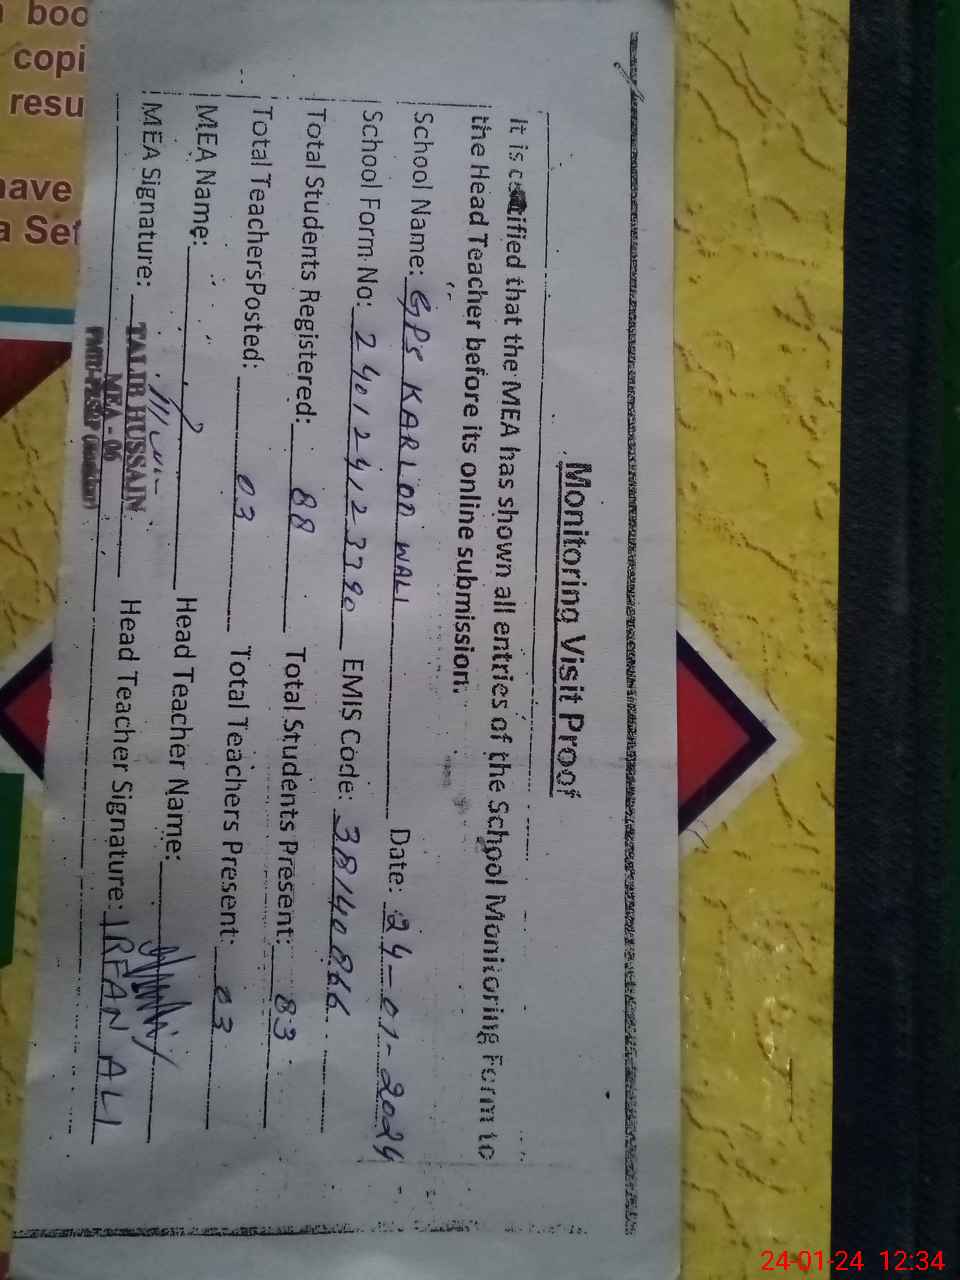 Monitoring Visit Proof
It is certified that the MEA has shown all entries of the School Monitoring Form to
the Head Teacher before its online submission.
School Name: GPS KARLOD WALI Date: 24-01-2024
School Form No: 240124123390 EMIS Code: 38140866
Total Students Registered: 88 Total Students Present: 83
Total TeachersPosted: 03 Total Teachers Present: 03
MEA Name: Head Teacher Name:
MEA Signature: TALIB HUSSAIN Head Teacher Signature: IRFAN ALI
MEA - 06
boo
copi
resu
have
a Set
24-01-24 12:34